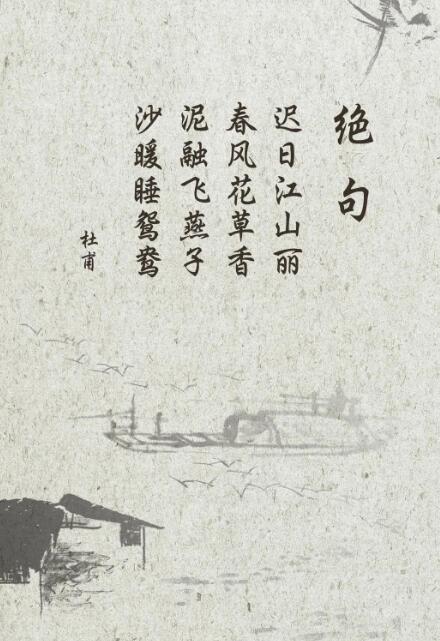 绝句
迟日江山丽
春风花草香
泥融飞燕子
沙暖睡鸳鸯
杜甫